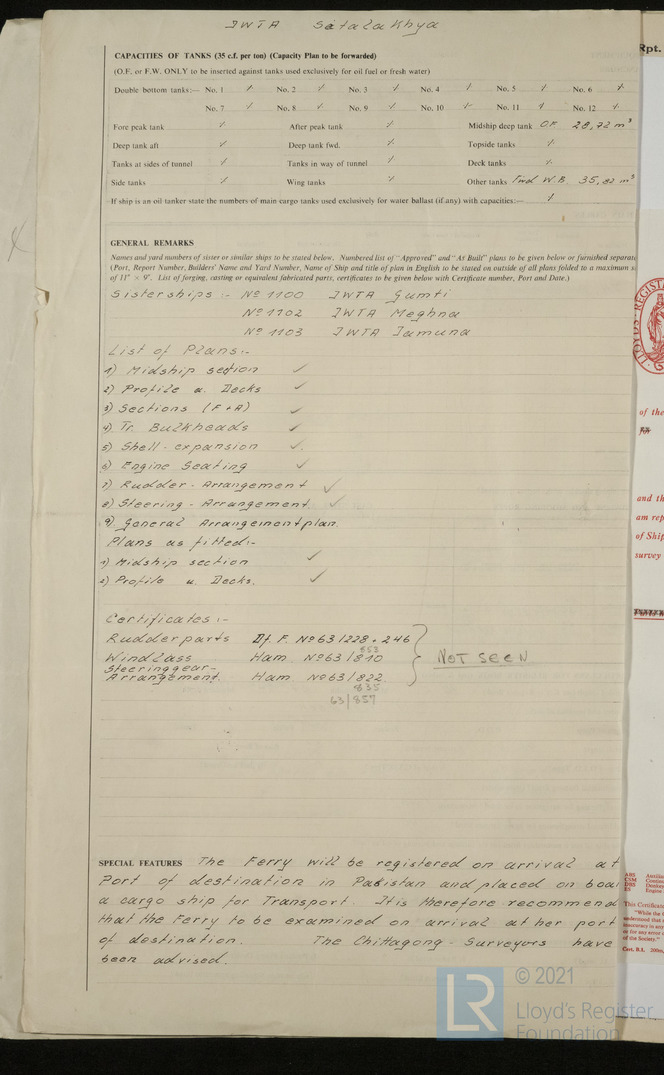 IWTA Satalakhya
CAPACITIES OF TANKS (35 c.f. per ton) (Capacity Plan to be forwarded)
(O.F. or F.W. ONLY to be inserted against tanks used exclusively for oil fuel or fresh water)
Double bottom tanks:— No. 1 ⁒ No. 2 ⁒ No. 3 ⁒ No. 4 ⁒ No. 5 ⁒ No. 6 ⁒
No. 7 ⁒ No. 8 ⁒ No. 9 ⁒ No. 10 ⁒ No. 11 ⁒ No. 12 ⁒
Fore peak tank ⁒ After peak tank ⁒ Midship deep tank O.F. 28,72 m³
Deep tank aft ⁒ Deep tank fwd. ⁒ Topside tanks ⁒
Tanks at sides of tunnel ⁒ Tanks in way of tunnel ⁒ Deck tanks ⁒
Side tanks ⁒ Wing tanks ⁒ Other tanks Fwd W.B. 35,82 m³
If ship is an oil tanker state the numbers of main cargo tanks used exclusively for water ballast (if any) with capacities:— ⁒
GENERAL REMARKS
Names and yard numbers of sister or similar ships to be stated below. Numbered list of "Approved" and "As Built" plans to be given below or furnished separate
(Port, Report Number, Builders' Name and Yard Number, Name of Ship and title of plan in English to be stated on outside of all plans folded to a maximum
of 11" × 9". List of forging, casting or equivalent fabricated parts, certificates to be given below with Certificate number, Port and Date.)
Sisterships :- No 1100 IWTA Gumti
No 1102 IWTA Meghna
No 1103 IWTA Jamuna
List of Plans:-
1) Midship section ✓
2) Profile u. Decks ✓
3) Sections (F+A) ✓
4) Tr. Bulkheads ✓
5) Shell-expansion ✓
6) Engine Seating ✓
7) Rudder-Arrangement ✓
8) Steering-Arrangement ✓
9) General Arrangementplan.
Plans as fitted:-
1) Midship section ✓
2) Profile u. Decks. ✓
Certificates :-
Rudderparts Df. F. No 63/228 + 246
853
Windlass Ham No 63/810 NOT SEEN
Steeringgear-
Arrangement Ham No 63/822
835
63/857
SPECIAL FEATURES The Ferry will be registered on arrival at
Port of destination in Pakistan and placed on boar
a cargo ship for Transport. It is therefore recommend
that the Ferry to be examined on arrival at her port
of destination. The Chittagong-Surveyors have
been advised.
Rpt.
LLOYD'S REGISTE
of the
and th
am rep
of Ship
survey
This Certificate
"While the
of the Society."
LR
© 2021
Lloyd's Register
Foundation